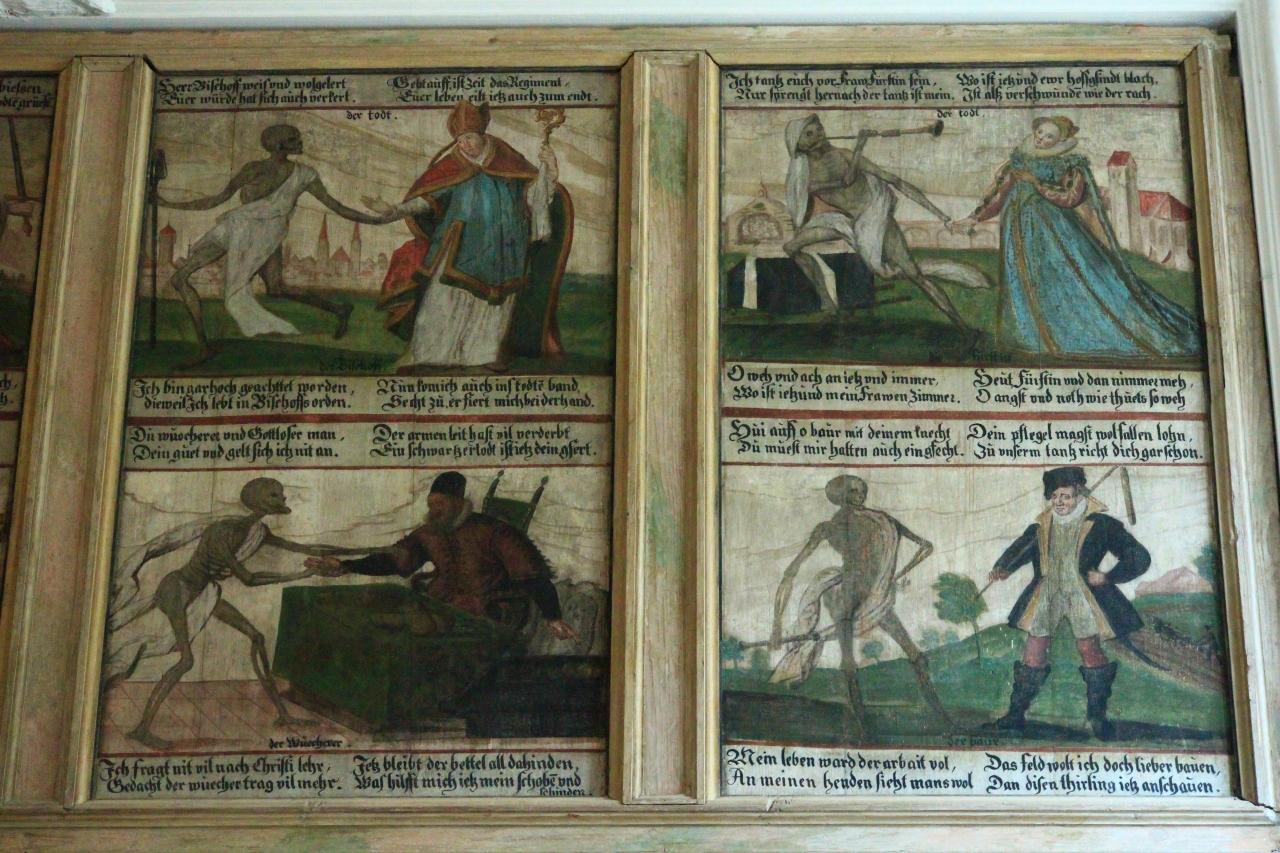 Herr Bischoff weis vnd wolgelert
Euer würde hat sich auch verkert.
Gebt auff, ist Zeit das Regiment,
Euer leben eilt ietz auch zum endt.
der todt.
der Bischoff
Ich bin gar hoch geachttet worden,
dieweil Ich lebt in Bischoffs orden.
Nün kom ich auch inß todtē band,
Secht zü, er fiert mich bei der hand.
Dü wüocherer vnd Gottloser man,
Dein güet vnd gelt sich ich nit an.
Der armen leit hast vil verderbt
Ein schwartzer todt ist ietz dein gfert.
der Wüecherer.
Ich fragt nit vil nach Christi lehr,
Gedacht der wuecher trag vil mehr.
Jetz bleibt der bettel all dahinden,
Was hilfft mich ietz mein schobē vnd
schinden.
Ich tantz eüch vor Fraw Fürstin fein,
Nur sprengt hernach der tantz ist mein.
Wo ist ietzünd ewr hoffgsindt bloch,
Ist alß verschwündē wie der rach.
der todt.
die Fürstin
O weh vnd ach an ietz vnd immer,
Wo ist ietzünd mein Frawen Zimmer.
Heüt Fürstin vnd dan nimmer meh,
O angst vnd noth wie thüets so weh
Hüi auff o baür mit deinem knecht
Dü müest mir halten auch ein gfecht.
Dein pflegel magst wol fallen lohn,
Zü vnserm tantz richt dich gar schon.
der paur
Mein leben ward der arbait vol,
An meinen henden sieht mans wol
Das feld wolt ich doch lieber baüen,
Dan disen thirling ietz anschauen.